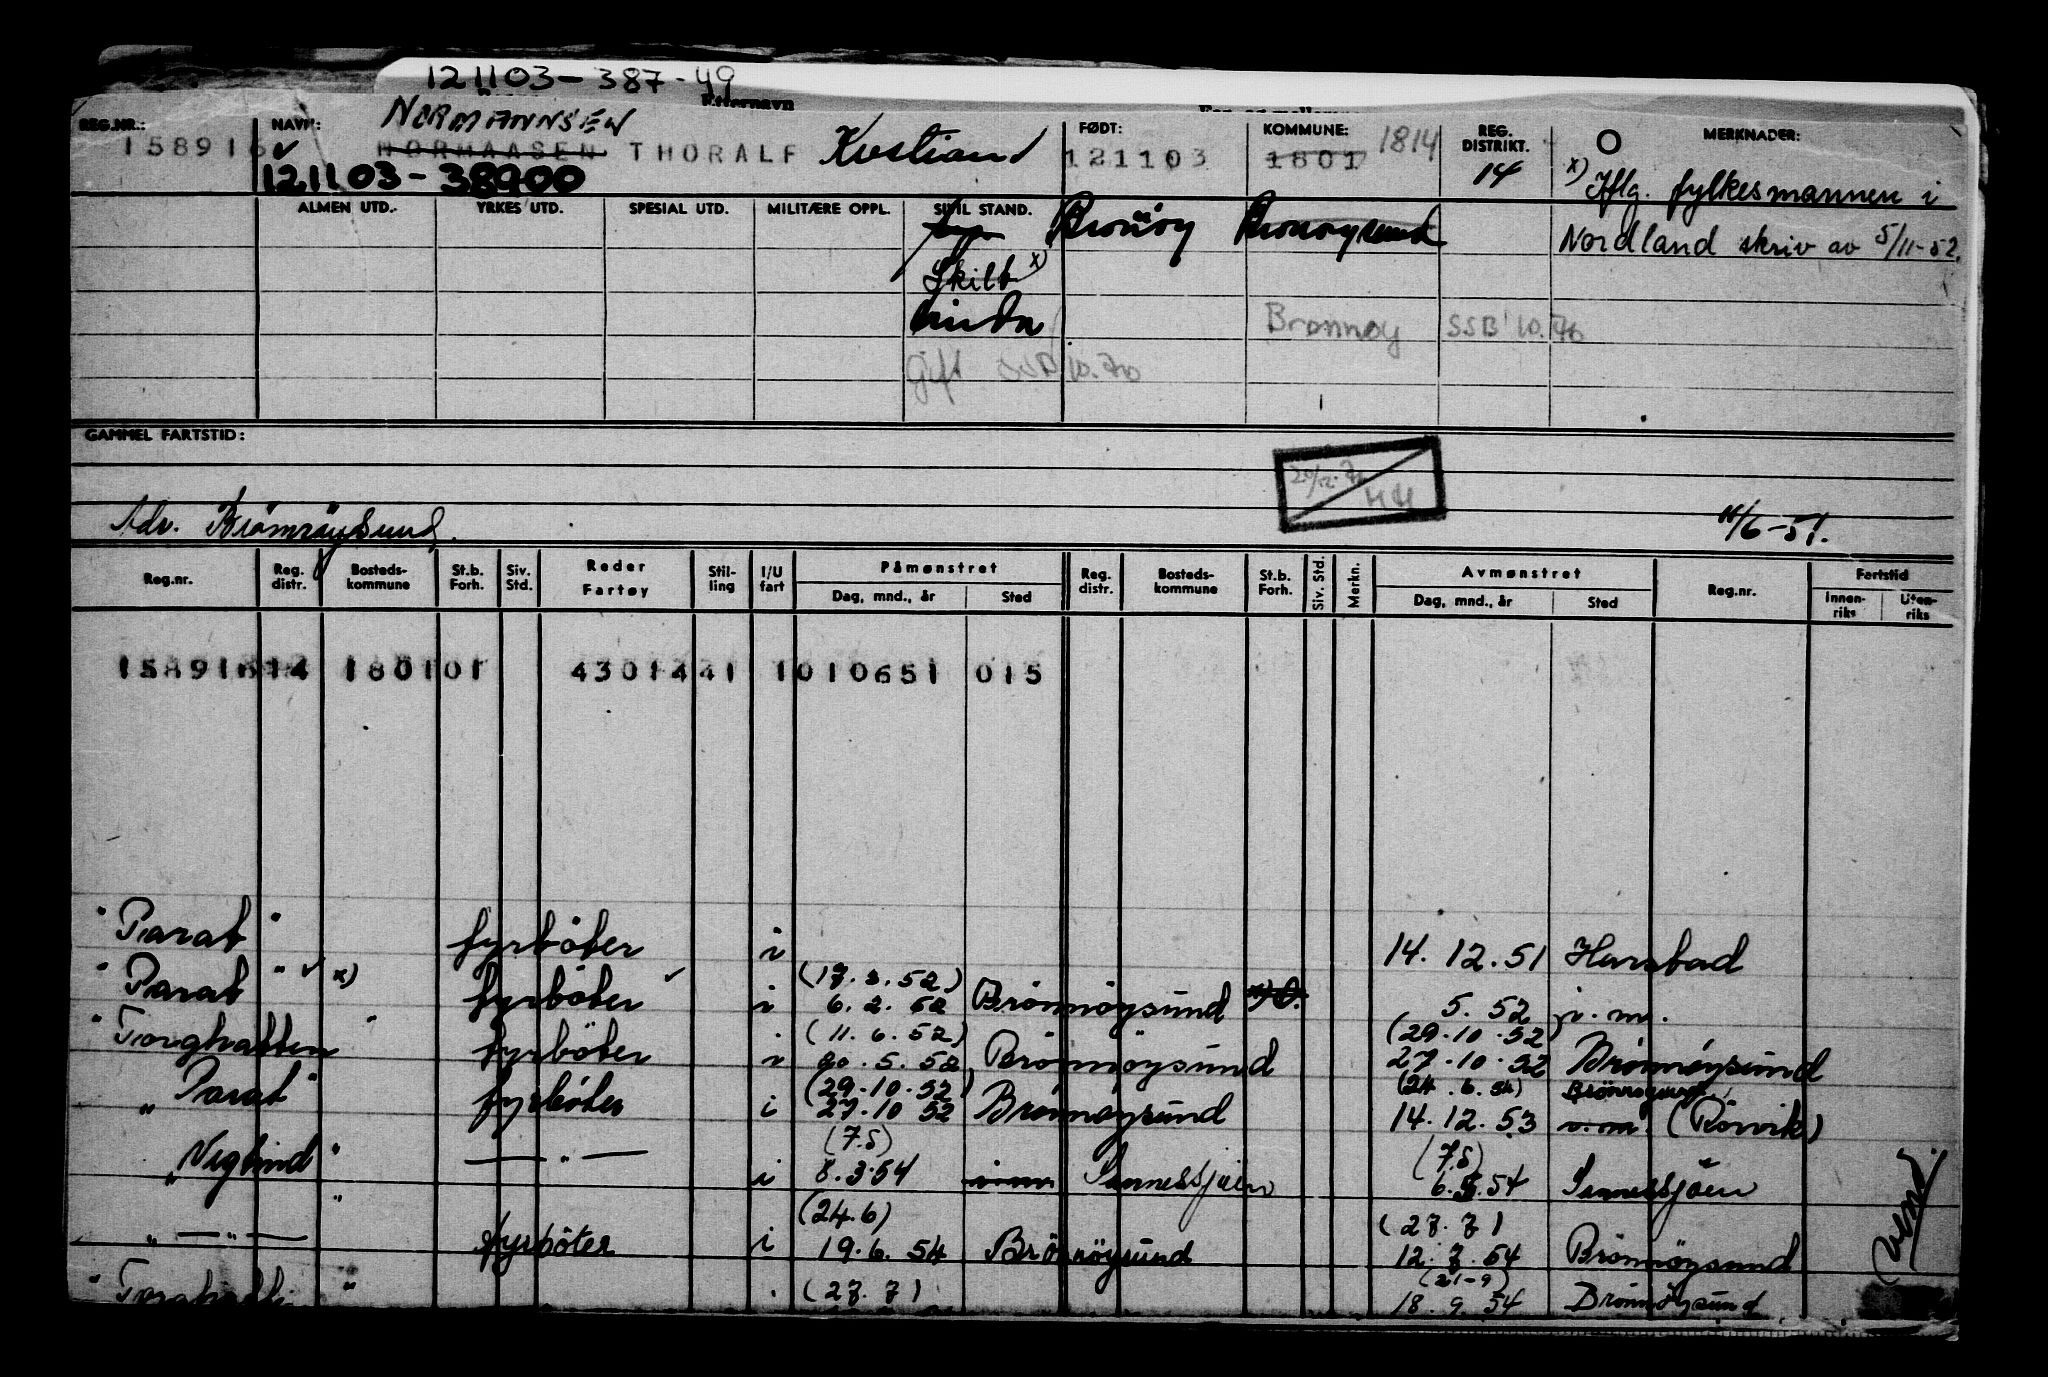 121103-387-49
Etternavn
REG.NR.: 158916
NAVN: NORMANNSEN
NORMAASEN THORALF Kristian
121103-38900
FØDT: 121103
KOMMUNE: 1801 1814
REG. DISTRIKT. 14
MERKNADER:
x) Iflg. fylkesmannen i
Nordland skriv av 5/11-52.
ALMEN UTD. YRKES UTD. SPESIAL UTD. MILITÆRE OPPL. SIVIL STAND.
Brønnøy Brønnøysund
Skilt x)
Gift SSB 10.70
Brønnøy SSB 10.70
GAMMEL FARTSTID:
Adr. Brönnöysund.
11/6-51.
Reg.nr. Reg. distr. Bosteds-kommune St.b. Forh. Siv. Std. Reder Fartøy Stil-ling I/U fart Påmønstret Dag, mnd., år Sted Reg. distr. Bosteds-kommune St.b. Forh. Siv. Std. Merkn. Avmønstret Dag, mnd., år Sted Reg.nr. Fartstid Innen-riks Uten-riks
15891614 180101 4301441 1010651 015
"Parat" fyrböter i 14.12.51 Harstad
(17.3.52)
"Parat" x) fyrböter i 6.2.52 Brönnöysund 5.52 v.m.
(11.6.52) (29.10.52)
"Torghatten" fyrböter i 20.5.52 Brönnöysund 27.10.52 Brönnöysund
(29.10.52) (24.6.54) Brönnöysund
"Parat" fyrböter i 27.10 52 Brönnöysund 14.12.53 v.m. (Rörvik)
(7.5) (7.5)
"Veglind" — " — i 8.3.54 Sannessjöen 6.5.54 Sannessjöen
(24.6) (27.7)
" — " — " fyrböter i 19.6.54 Brönnöysund 12.7.54 Brönnöysund
(27.7) (21-9)
"Torghatten" 18.9.54 Brönnöysund
(vend)